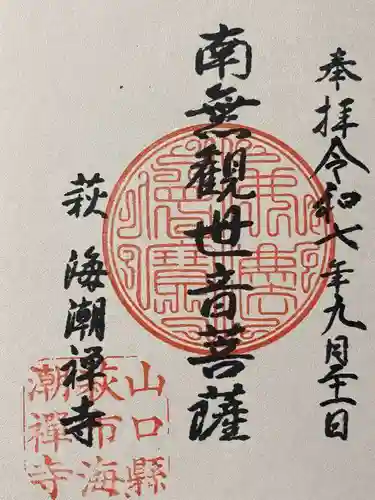 奉拝令和七年九月二十一日
南無觀世音菩薩
萩 海潮禅寺
山口縣
萩市海
潮禅寺